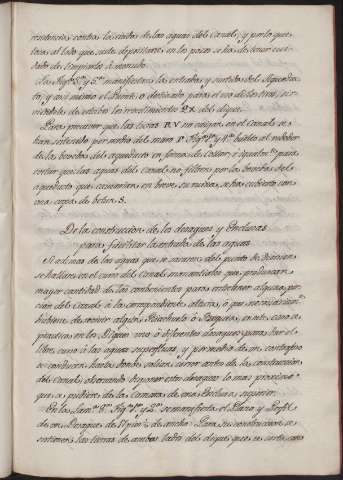 resistencia contra los ciados de las aguas del Canal, y por lo que
toca al lodo que suele depositarse en los pozos se ha de tener cui-
dado de limpiarlo a menudo.
Las Figs. 3ª y 5ª manifiestan las entradas y surtidas del Aqueduc-
to, y asi mismo el Puente destinado para el uso de las tres, sir-
viendoles de estribo los revestimientos Q X del dique.
Para precaver que las tierras R V no caigan en el Canal se ha
construido por ancho del muro P. Figs. 1ª y 4ª hasta al rededor
de las bovedas del aqueducto en forma de
cortar que las aguas del Canal no filtren por las bovedas del
aqueducto que causarian en breve su ruina, se han cubierto con
una capa de betun S.
De la construccion de los desagues y Esclusas
para facilitar la entrada de las aguas
Si ademas de las aguas que se reunen del punto de Division
se hallasen en el curso del Canal manantiales que produzcan
mayor cantidad de las convenientes para entretener algunas por-
cion del Canal a la correspondiente altura, ó que necesariamente
hubiese de reunir algun Riachuelo ó Barranco, en este caso se
practica en los Diques uno ó diferentes desagues para dar el
libre curso á las aguas superfluas, y por medio de un contrafoso
se conducen hasta donde solian correr antes de la construccion
del Canal, observando disponer estos desagues lo mas proximo
que se pudiere de la Camara de una Esclusa superior.
En las Lamª 8ª Figs. 1ª y 2ª se manifiesta el Plano y Perfil
de un Desague de 17 pies de ancho. Para su construccion se
sostienen las tierras de ambos lados del dique que se corta con